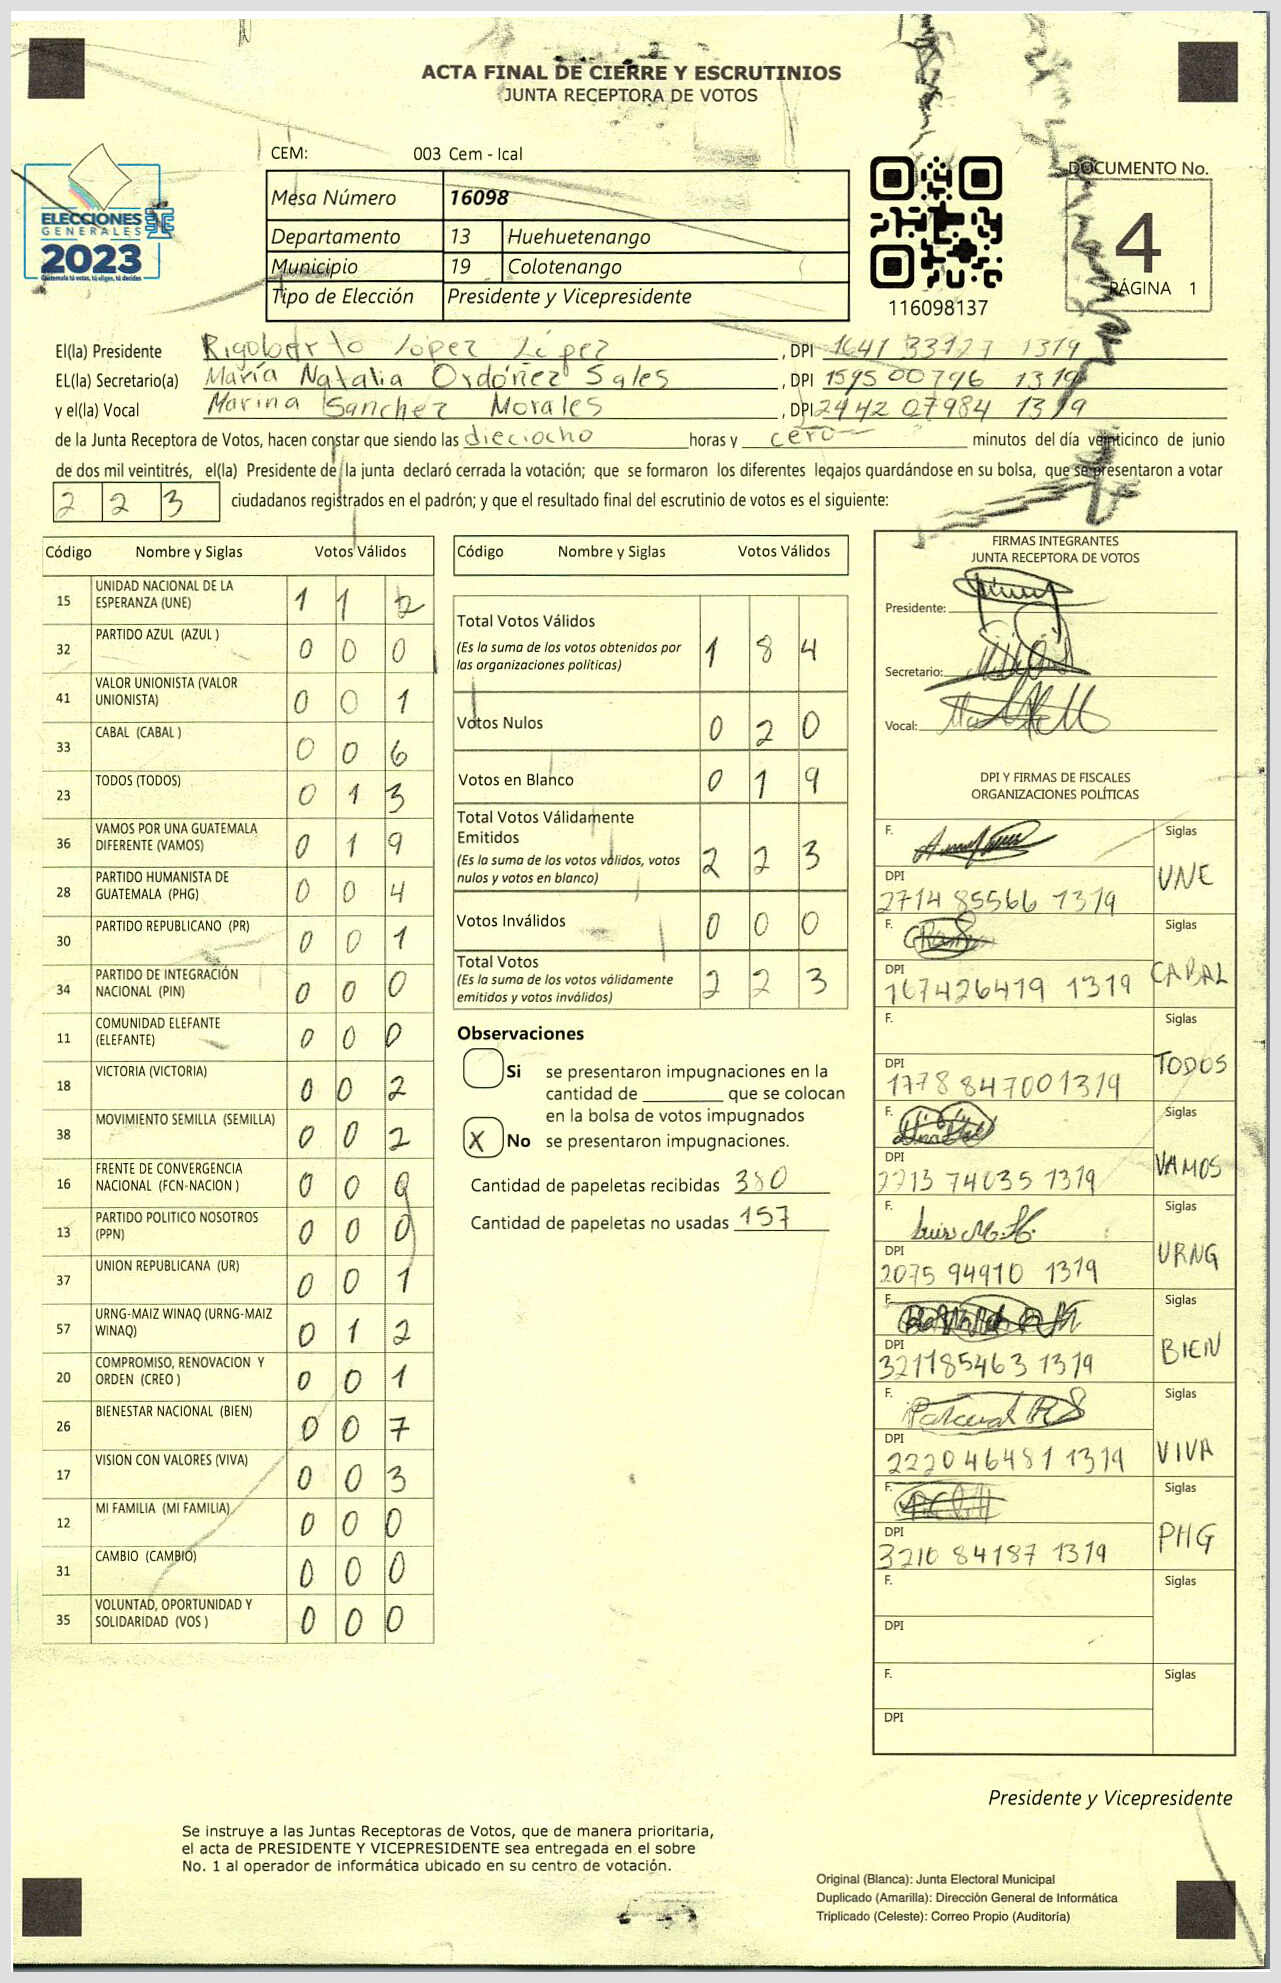 ACTA FINAL DE CIERRE Y ESCRUTINIOS
JUNTA RECEPTORA DE VOTOS
CEM: 003 Cem - Ical
ELECCIONES
GENERALES
2023
Guatemala tú votas, tú eliges, tú decides
Mesa Número 16098
Departamento 13 Huehuetenango
Municipio 19 Colotenango
Tipo de Elección Presidente y Vicepresidente
116098137
DOCUMENTO No.
4
PÁGINA 1
El(la) Presidente Rigoberto López López , DPI 1641 33127 1319
EL(la) Secretario(a) María Natalia Ordóñez Sales , DPI 1595 00796 1319
y el(la) Vocal Marina Sanchez Morales , DPI 2442 07984 1319
de la Junta Receptora de Votos, hacen constar que siendo las dieciocho horas y cero minutos del día veinticinco de junio
de dos mil veintitrés, el(la) Presidente de la junta declaró cerrada la votación; que se formaron los diferentes legajos guardándose en su bolsa, que se presentaron a votar
2 2 3 ciudadanos registrados en el padrón; y que el resultado final del escrutinio de votos es el siguiente:
Código Nombre y Siglas Votos Válidos
15 UNIDAD NACIONAL DE LA ESPERANZA (UNE) 1 1 2
32 PARTIDO AZUL (AZUL ) 0 0 0
41 VALOR UNIONISTA (VALOR UNIONISTA) 0 0 1
33 CABAL (CABAL ) 0 0 6
23 TODOS (TODOS) 0 1 3
36 VAMOS POR UNA GUATEMALA DIFERENTE (VAMOS) 0 1 9
28 PARTIDO HUMANISTA DE GUATEMALA (PHG) 0 0 4
30 PARTIDO REPUBLICANO (PR) 0 0 1
34 PARTIDO DE INTEGRACIÓN NACIONAL (PIN) 0 0 0
11 COMUNIDAD ELEFANTE (ELEFANTE) 0 0 0
18 VICTORIA (VICTORIA) 0 0 2
38 MOVIMIENTO SEMILLA (SEMILLA) 0 0 2
16 FRENTE DE CONVERGENCIA NACIONAL (FCN-NACION ) 0 0 0
13 PARTIDO POLITICO NOSOTROS (PPN) 0 0 0
37 UNION REPUBLICANA (UR) 0 0 1
57 URNG-MAIZ WINAQ (URNG-MAIZ WINAQ) 0 1 2
20 COMPROMISO, RENOVACION Y ORDEN (CREO ) 0 0 1
26 BIENESTAR NACIONAL (BIEN) 0 0 7
17 VISION CON VALORES (VIVA) 0 0 3
12 MI FAMILIA (MI FAMILIA) 0 0 0
31 CAMBIO (CAMBIO) 0 0 0
35 VOLUNTAD, OPORTUNIDAD Y SOLIDARIDAD (VOS ) 0 0 0
Código Nombre y Siglas Votos Válidos
Total Votos Válidos 1 8 4
(Es la suma de los votos obtenidos por
las organizaciones políticas)
Votos Nulos 0 2 0
Votos en Blanco 0 1 9
Total Votos Válidamente
Emitidos 2 2 3
(Es la suma de los votos válidos, votos
nulos y votos en blanco)
Votos Inválidos 0 0 0
Total Votos 2 2 3
(Es la suma de los votos válidamente
emitidos y votos inválidos)
Observaciones
Si se presentaron impugnaciones en la
cantidad de ________ que se colocan
en la bolsa de votos impugnados
X No se presentaron impugnaciones.
Cantidad de papeletas recibidas 380
Cantidad de papeletas no usadas 157
FIRMAS INTEGRANTES
JUNTA RECEPTORA DE VOTOS
Presidente:
Secretario:
Vocal:
DPI Y FIRMAS DE FISCALES
ORGANIZACIONES POLÍTICAS
F. Siglas
DPI UNE
2714 85566 1319
F. Siglas
DPI CABAL
167426419 1319
F. Siglas
DPI TODOS
1778 84700 1319
F. Siglas
DPI VAMOS
2213 74035 1319
F. Luis M.H. Siglas
DPI URNG
2075 94910 1319
F. Siglas
DPI BIEN
321185463 1319
F. Pascual R S Siglas
DPI VIVA
2220 46481 1319
F. Siglas
DPI PHG
3210 84187 1319
F. Siglas
DPI
F. Siglas
DPI
Presidente y Vicepresidente
Se instruye a las Juntas Receptoras de Votos, que de manera prioritaria,
el acta de PRESIDENTE Y VICEPRESIDENTE sea entregada en el sobre
No. 1 al operador de informática ubicado en su centro de votación.
Original (Blanca): Junta Electoral Municipal
Duplicado (Amarilla): Dirección General de Informática
Triplicado (Celeste): Correo Propio (Auditoría)